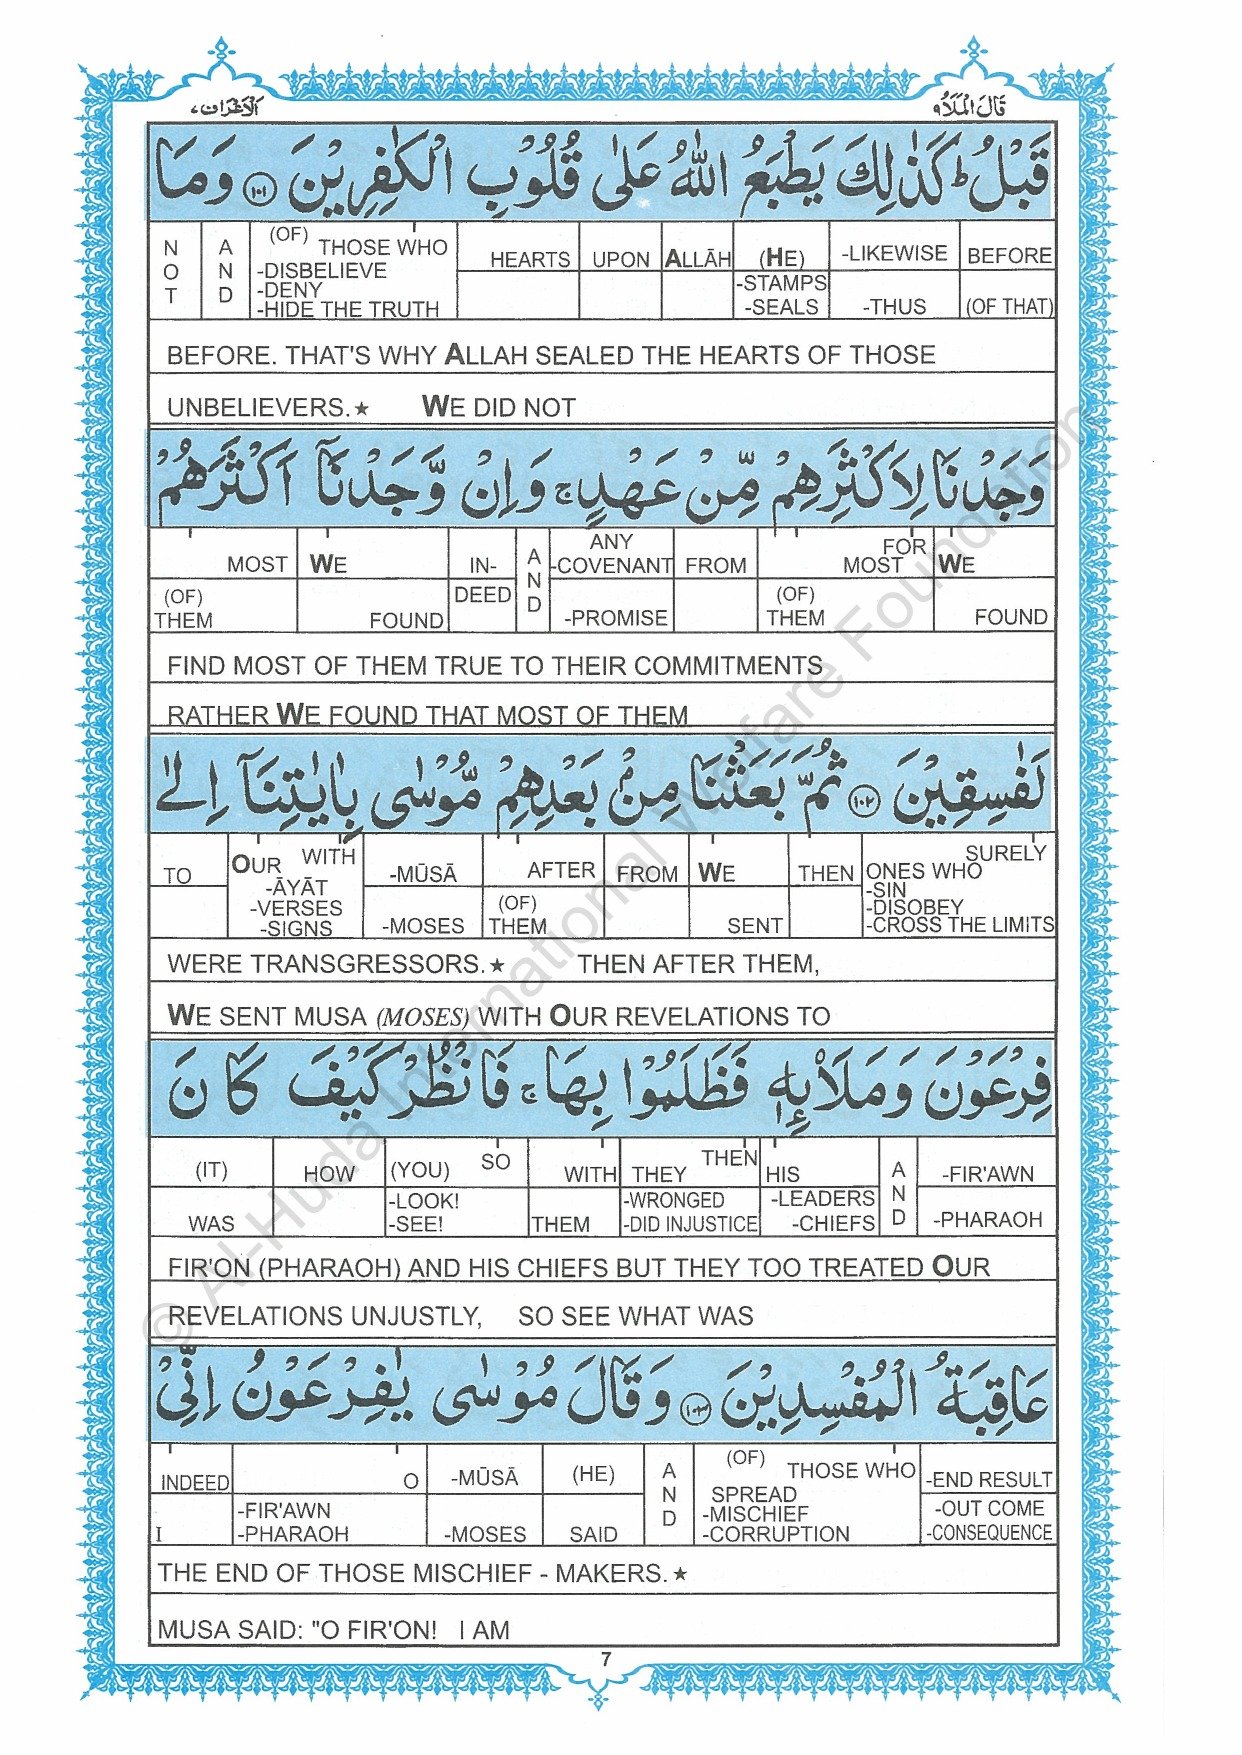 قَالَ الْمَلَاُ ۹
الْاَعْرَاف ۷
قَبْلُ ؕ كَذٰلِكَ يَطْبَعُ اللّٰهُ عَلٰى قُلُوْبِ الْكٰفِرِيْنَ ۱۰۱ وَمَا
NOT AND (OF) THOSE WHO HEARTS UPON ALLĀH (HE) -LIKEWISE BEFORE
-DISBELIEVE -DENY -HIDE THE TRUTH -STAMPS -SEALS -THUS (OF THAT)
BEFORE. THAT'S WHY ALLAH SEALED THE HEARTS OF THOSE
UNBELIEVERS.★ WE DID NOT
وَجَدْنَا لِاَكْثَرِهِمْ مِّنْ عَهْدٍ ۚ وَاِنْ وَّجَدْنَاۤ اَكْثَرَهُمْ
MOST WE IN- AND ANY -COVENANT FROM FOR MOST WE
(OF) THEM FOUND DEED -PROMISE (OF) THEM FOUND
FIND MOST OF THEM TRUE TO THEIR COMMITMENTS
RATHER WE FOUND THAT MOST OF THEM
لَفٰسِقِيْنَ ۱۰۲ ثُمَّ بَعَثْنَا مِنْۢ بَعْدِهِمْ مُّوْسٰى بِاٰيٰتِنَاۤ اِلٰى
TO OUR WITH -MŪSĀ AFTER FROM WE THEN SURELY ONES WHO
-ĀYĀT -VERSES -SIGNS -MOSES (OF) THEM SENT -SIN -DISOBEY -CROSS THE LIMITS
WERE TRANSGRESSORS.★ THEN AFTER THEM,
WE SENT MUSA (MOSES) WITH OUR REVELATIONS TO
فِرْعَوْنَ وَمَلَا۟ئِهٖ فَظَلَمُوْا بِهَا ۚ فَانْظُرْ كَيْفَ كَانَ
(IT) HOW (YOU) SO WITH THEY THEN HIS AND -FIR'AWN
WAS -LOOK! -SEE! THEM -WRONGED -DID INJUSTICE -LEADERS -CHIEFS -PHARAOH
FIR'ON (PHARAOH) AND HIS CHIEFS BUT THEY TOO TREATED OUR
REVELATIONS UNJUSTLY, SO SEE WHAT WAS
عَاقِبَةُ الْمُفْسِدِيْنَ ۱۰۳ وَقَالَ مُوْسٰى يٰفِرْعَوْنُ اِنِّىْ
INDEED O -MŪSĀ (HE) AND (OF) THOSE WHO -END RESULT
I -FIR'AWN -PHARAOH -MOSES SAID SPREAD -MISCHIEF -CORRUPTION -OUT COME -CONSEQUENCE
THE END OF THOSE MISCHIEF - MAKERS.★
MUSA SAID: "O FIR'ON! I AM
7
© Al-Huda International Welfare Foundation